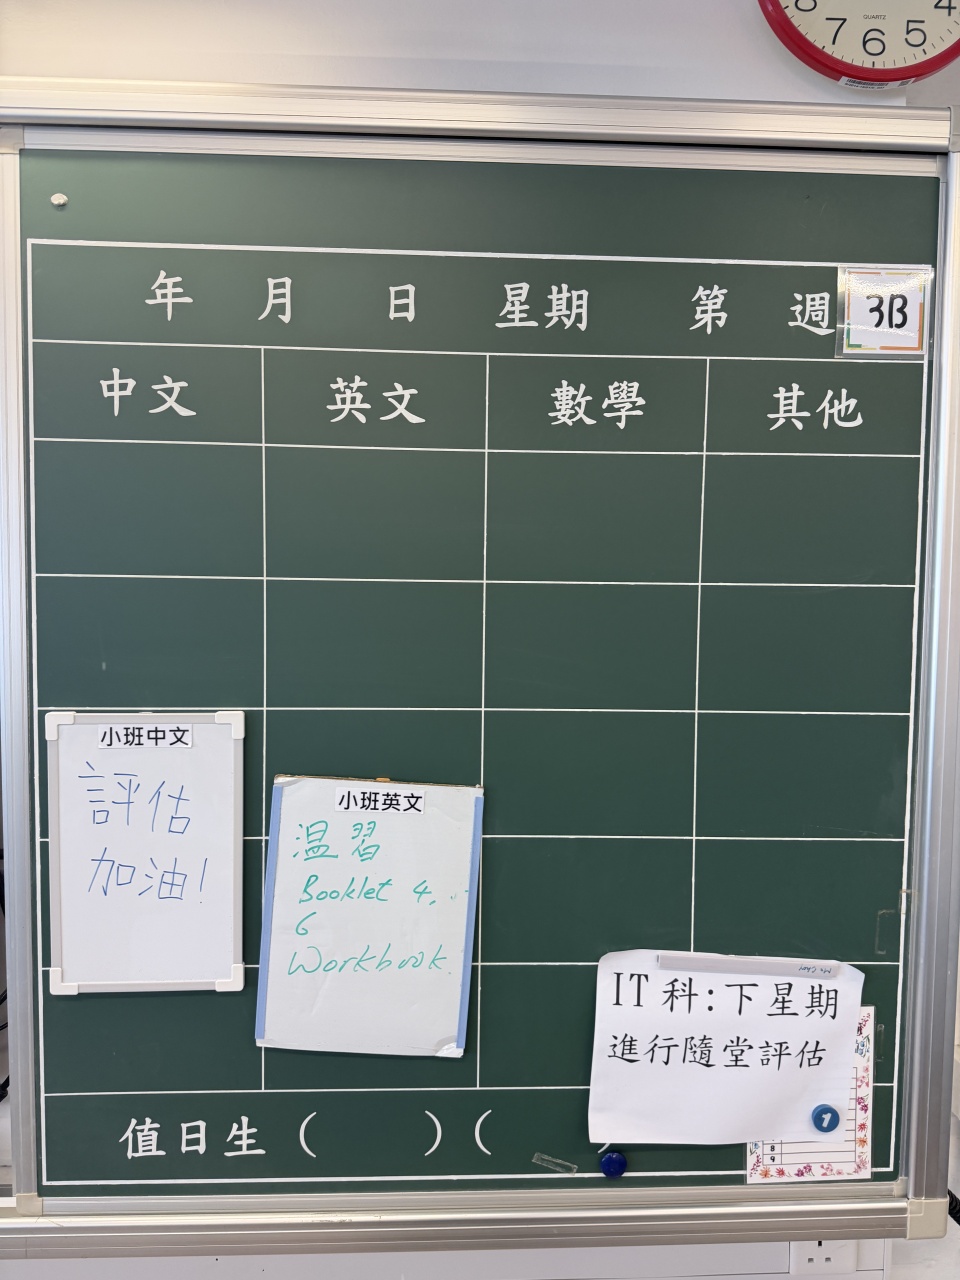 4
8
7 6 5
QUARTZ
年 月 日 星期 第 週
3B
中文 英文 數學 其他
小班中文
評估
加油!
小班英文
温習
Booklet 4,
6
Workbook.
IT 科:下星期
進行隨堂評估
1
8
9
值日生( )( )